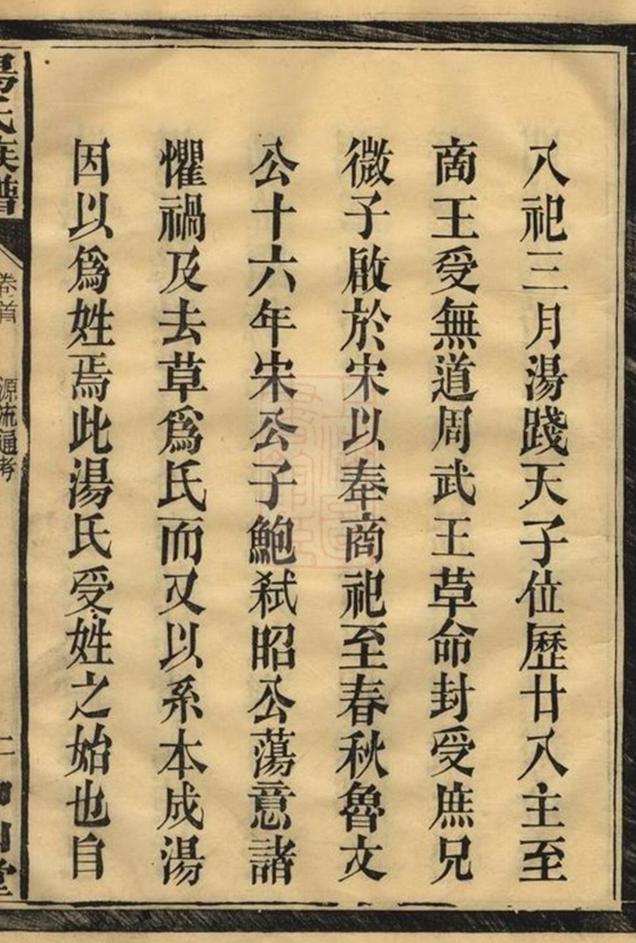 八祀三月湯踐天子位歷廿八主至
商王受無道周武王革命封受庶兄
微子啟於宋以奉商祀至春秋魯文
公十六年宋公子鮑弒昭公蕩意諸
懼禍及去草爲氏而又以系本成湯
因以爲姓焉此湯氏受姓之始也自
氏族譜
卷首
源流通考